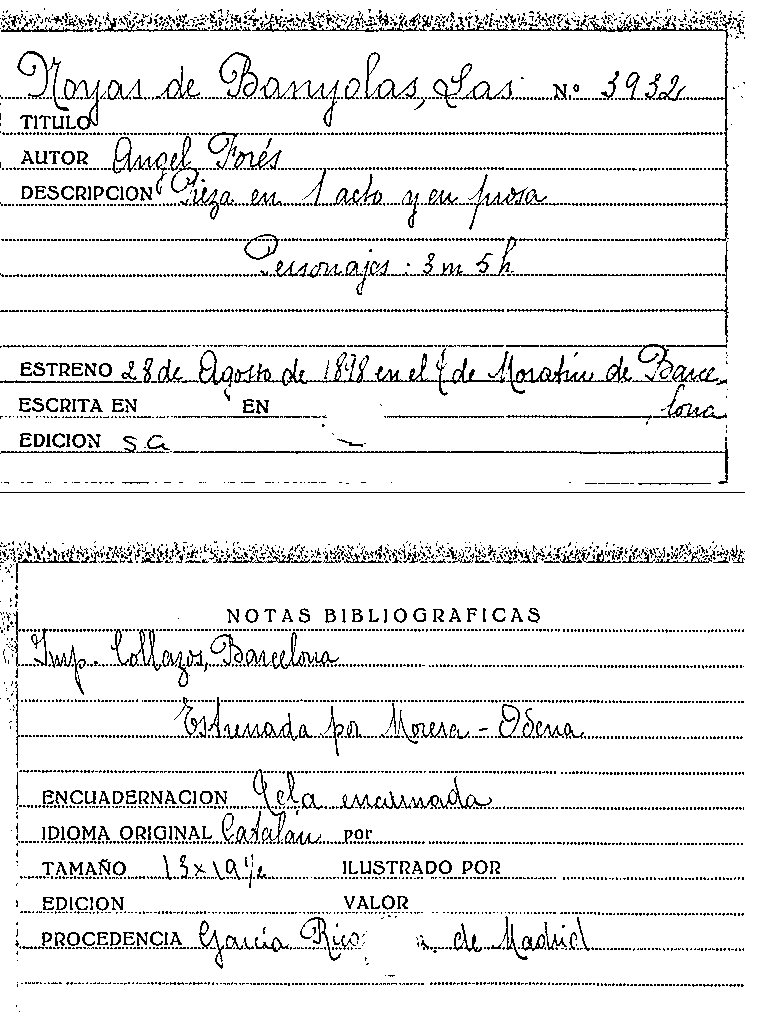 Noyas de Banyolas, Las N.º 3932
TITULO
AUTOR Angel Forés
DESCRIPCION Pieza en 1 acto y en prosa
Personajes: 3 m 5 h
ESTRENO 28 de Agosto de 1898 en el T. de Moratín de Barce-
lona
ESCRITA EN EN
EDICION s a
NOTAS BIBLIOGRAFICAS
Imp. Collazos, Barcelona
Estrenada por Morera - Odena
ENCUADERNACION Tela encarnada
IDIOMA ORIGINAL Catalán por
TAMAÑO 13 x 19 ½ ILUSTRADO POR
EDICION VALOR
PROCEDENCIA García Rico de Madrid